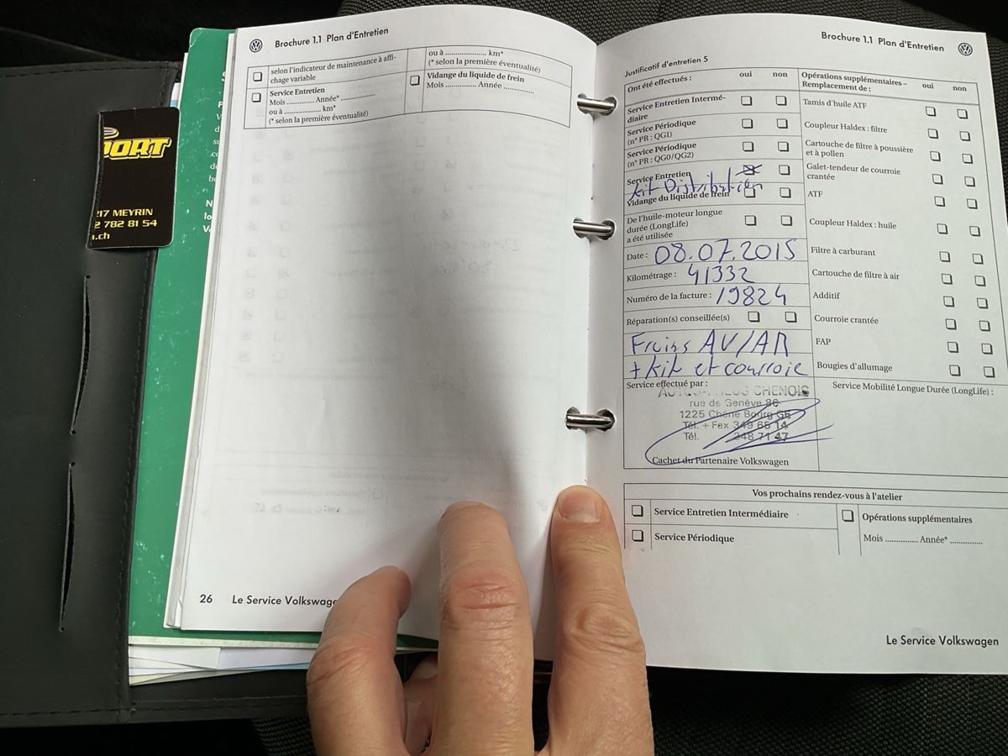 PORT
217 MEYRIN
2 782 81 54
.ch
Brochure 1.1 Plan d'Entretien
selon l'indicateur de maintenance à affi-
chage variable
ou à .................... km*
(* selon la première éventualité)
Service Entretien
Mois ............ Année* ............
ou à .................... km*
(* selon la première éventualité)
Vidange du liquide de frein
Mois ............ Année ............
26 Le Service Volkswage
Brochure 1.1 Plan d'Entretien
Justificatif d'entretien 5
Ont été effectués : oui non
Service Entretien Intermé-
diaire
Service Périodique
(n° PR : QG1)
Service Périodique
(n° PR : QG0/QG2)
Service Entretien
Kit Distribution
Vidange du liquide de frein
De l'huile-moteur longue
durée (LongLife)
a été utilisée
Date : 08.07.2015
Kilométrage : 41332
Numéro de la facture : 19824
Réparation(s) conseillée(s)
Freins AV/AR
+ kit et courroie
Service effectué par :
CHENOIS
rue de Genève 86
1225 Chêne Bourg GE
Tél. + Fax 349 65 14
Tél. 348 71 47
Cachet du Partenaire Volkswagen
Opérations supplémentaires –
Remplacement de : oui non
Tamis d'huile ATF
Coupleur Haldex : filtre
Cartouche de filtre à poussière
et à pollen
Galet-tendeur de courroie
crantée
ATF
Coupleur Haldex : huile
Filtre à carburant
Cartouche de filtre à air
Additif
Courroie crantée
FAP
Bougies d'allumage
Service Mobilité Longue Durée (LongLife) :
Vos prochains rendez-vous à l'atelier
Service Entretien Intermédiaire
Service Périodique
Opérations supplémentaires
Mois ............ Année* ............
Le Service Volkswagen